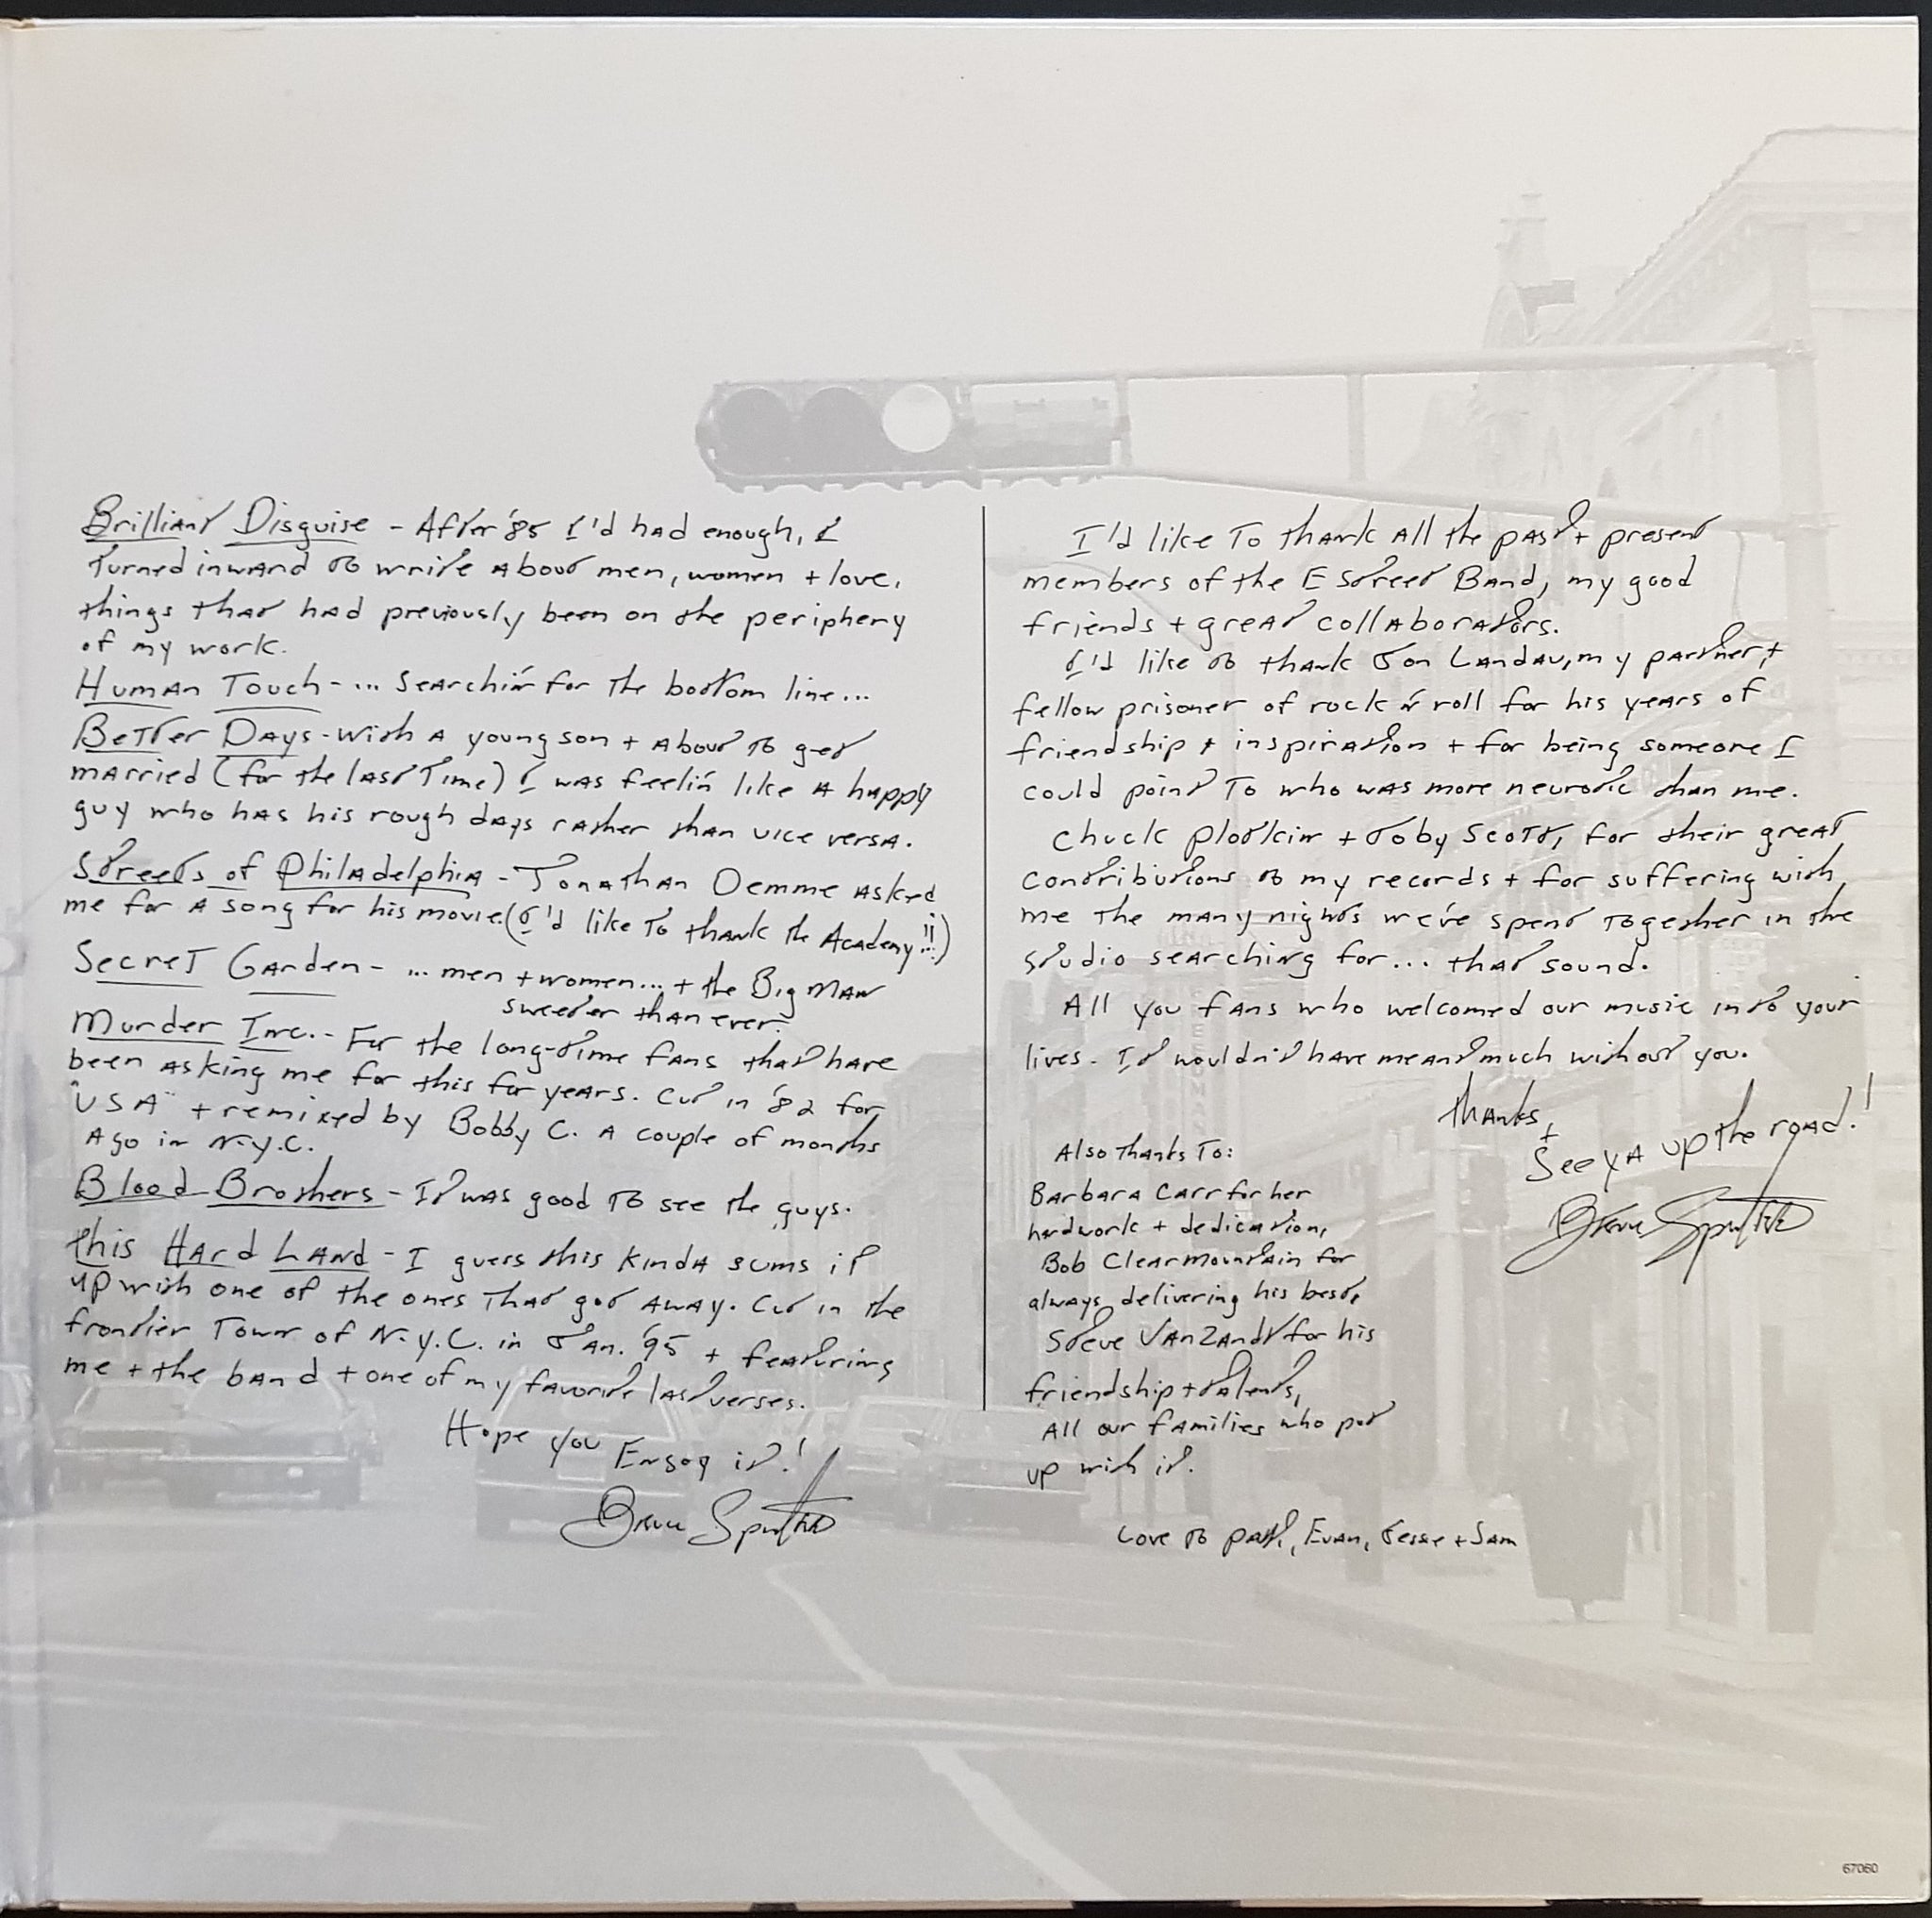 Brilliant Disguise - After '85 I'd had enough, I
turned inward to write about men, women + love,
things that had previously been on the periphery
of my work.
Human Touch - ... searchin' for the bottom line...
Better Days - with a young son + about to get
married (for the last time) I was feelin' like a happy
guy who has his rough days rather than vice versa.
Streets of Philadelphia - Jonathan Demme asked
me for a song for his movie. (I'd like to thank the Academy!!)
Secret Garden - ... men + women... + the Big Man
sweeter than ever.
Murder Inc. - For the long-time fans that have
been asking me for this for years. Cut in '82 for
"USA" + remixed by Bobby C. a couple of months
ago in N.Y.C.
Blood Brothers - It was good to see the guys.
This Hard Land - I guess this kinda sums it
up with one of the ones that got away. Cut in the
frontier town of N.Y.C. in Jan. '95 + featuring
me + the band + one of my favorite last verses.
Hope you Enjoy it!
Bruce Springsteen
I'd like to thank all the past + present
members of the E Street Band, my good
friends + great collaborators.
I'd like to thank Jon Landau, my partner, +
fellow prisoner of rock n' roll for his years of
friendship + inspiration + for being someone I
could point to who was more neurotic than me.
Chuck Plotkin + Toby Scott, for their great
contributions to my records + for suffering with
me the many nights we've spent together in the
studio searching for... that sound.
All you fans who welcomed our music into your
lives. It wouldn't have meant much without you.
thanks,
+
See ya up the road!
Bruce Springsteen
Also thanks to:
Barbara Carr for her
hardwork + dedication,
Bob Clearmountain for
always delivering his best,
Steve Van Zandt for his
friendship + talents,
All our families who put
up with it.
Love to Patti, Evan, Jesse + Sam
67060